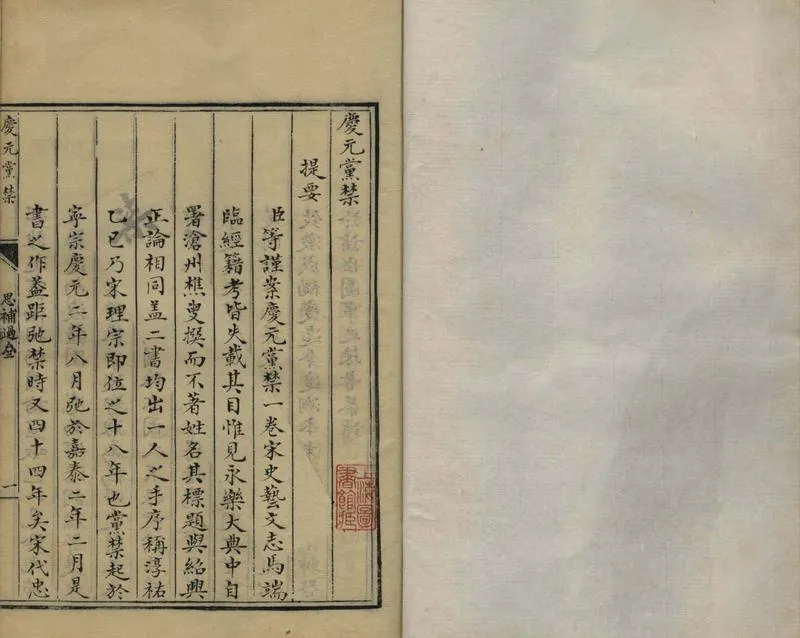 慶元黨禁
提要
臣等謹案慶元黨禁一卷宋史藝文志馬端
臨經籍考皆失載其目惟見永樂大典中自
署滄州樵叟撰而不著姓名其標題與紹興
正論相同盖二書均出一人之手序稱淳祐
乙巳乃宋理宗即位之十八年也黨禁起於
寧宗慶元二年八月弛於嘉泰二年二月是
書之作葢距弛禁時又四十四年矣宋代忠
慶元黨禁
思補過齋
一
上海圖
書館藏